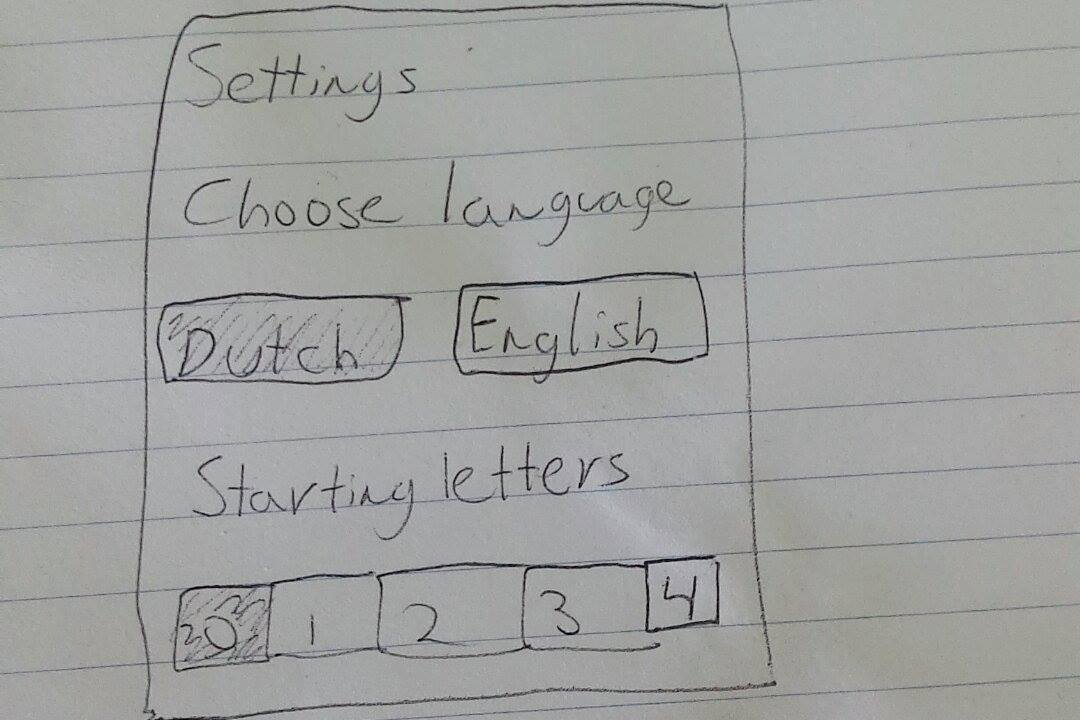 Settings
Choose language
Dutch English
Starting letters
0 1 2 3 4